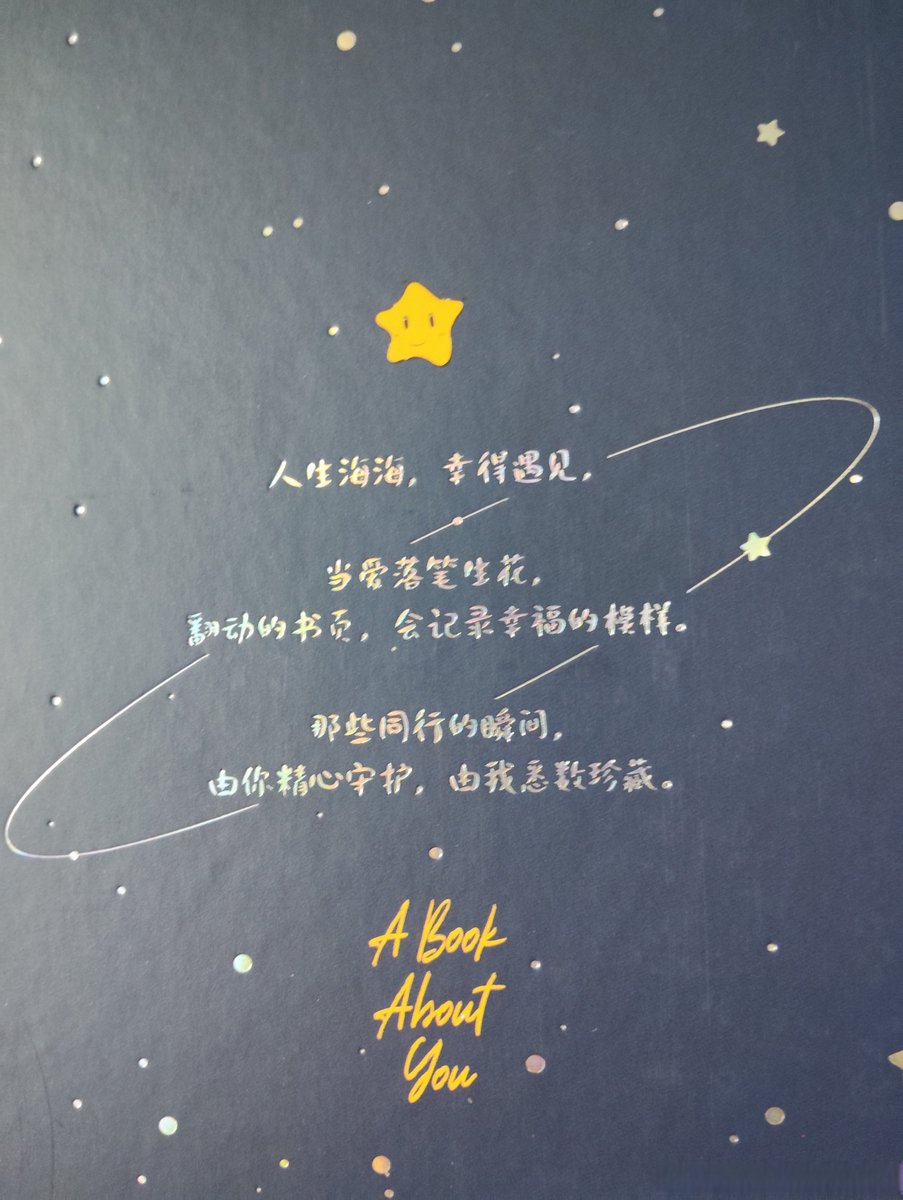 人生海海，幸得遇见，
当爱落笔生花，
翻动的书页，会记录幸福的模样。
那些同行的瞬间，
由你精心守护，由我悉数珍藏。
A Book
About
You